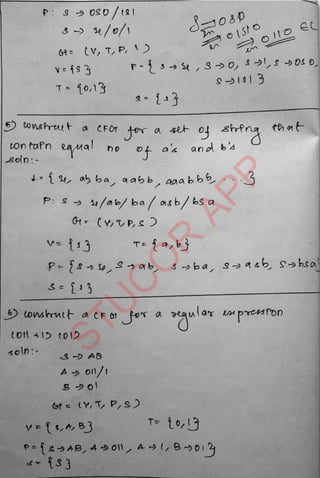 P: S → 0S0 / 1S1
S → ε/0/1
G = (V, T, P, S)
V = {S} P = { S → ε, S → 0, S → 1, S → 0S0,
S → 1S1 }
T = {0,1}
S = {S}
S → 0S0
⇒ 01S10
⇒ 0110 ∈ L
5) Construct a CFG for a set of string that
contain equal no of a's and b's
soln:-
L = { ε, ab, ba, aabb, aaabbb, ...}
P: S → ε/ab/ba/asb/bsa
G = (V, T, P, S)
V = {S} T = {a,b}
P = {S → ε, S → ab, S → ba, S → asb, S → bsa}
S = {S}
6) Construct a CFG for a regular expression
(011 +1) (01)
soln:-
S → AB
A → 011/1
B → 01
G = (V, T, P, S)
V = {S, A, B} T = {0,1}
P = {S → AB, A → 011, A → 1, B → 01}
S = {S}
STUCOR APP